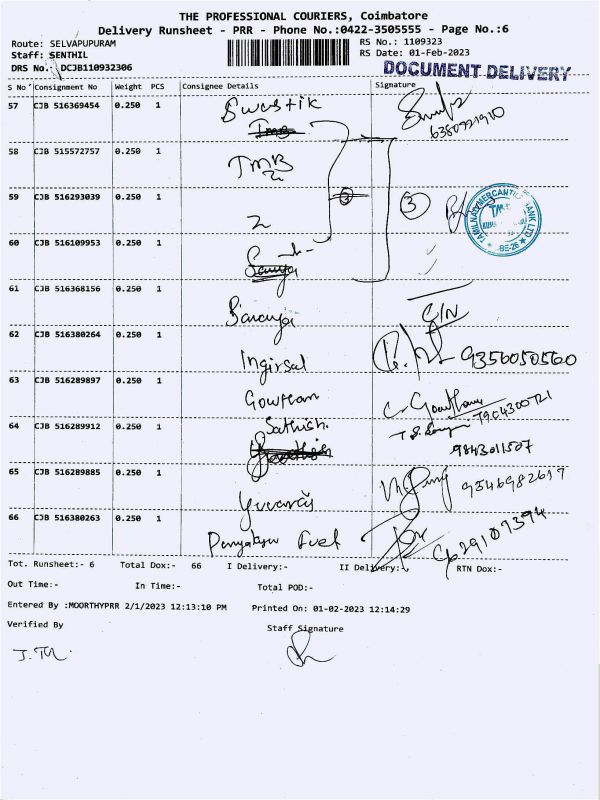 THE PROFESSIONAL COURIERS, Coimbatore
Delivery Runsheet - PRR - Phone No.:0422-3505555 - Page No.:6
Route: SELVAPUPURAM
RS No.: 1109323
Staff: SENTHIL
RS Date: 01-Feb-2023
DRS No.: DCJB110932306
DOCUMENT DELIVERY
S No Consignment No Weight PCS Consignee Details Signature
57 CJB 516369454 0.250 1 Swastik
TMB
6380921910
58 CJB 515572757 0.250 1 TMB
59 CJB 516293039 0.250 1
3 3
TAMILNAD MERCANTILE BANK LTD
60 CJB 516109953 0.250 1
Saranya
61 CJB 516368156 0.250 1 Saranya C/N
62 CJB 516380264 0.250 1 Ingirsal 9356050560
63 CJB 516289897 0.250 1 Gowtham C. Gowtham 7904300721
64 CJB 516289912 0.250 1 Sathish.
9843011507
65 CJB 516289885 0.250 1 Yuvaraj 9546982617
66 CJB 516380263 0.250 1 Fuel
Tot. Runsheet:- 6 Total Dox:- 66 I Delivery:- II Delivery:- RTN Dox:-
Out Time:- In Time:- Total POD:-
Entered By :MOORTHYPRR 2/1/2023 12:13:10 PM Printed On: 01-02-2023 12:14:29
Verified By Staff Signature